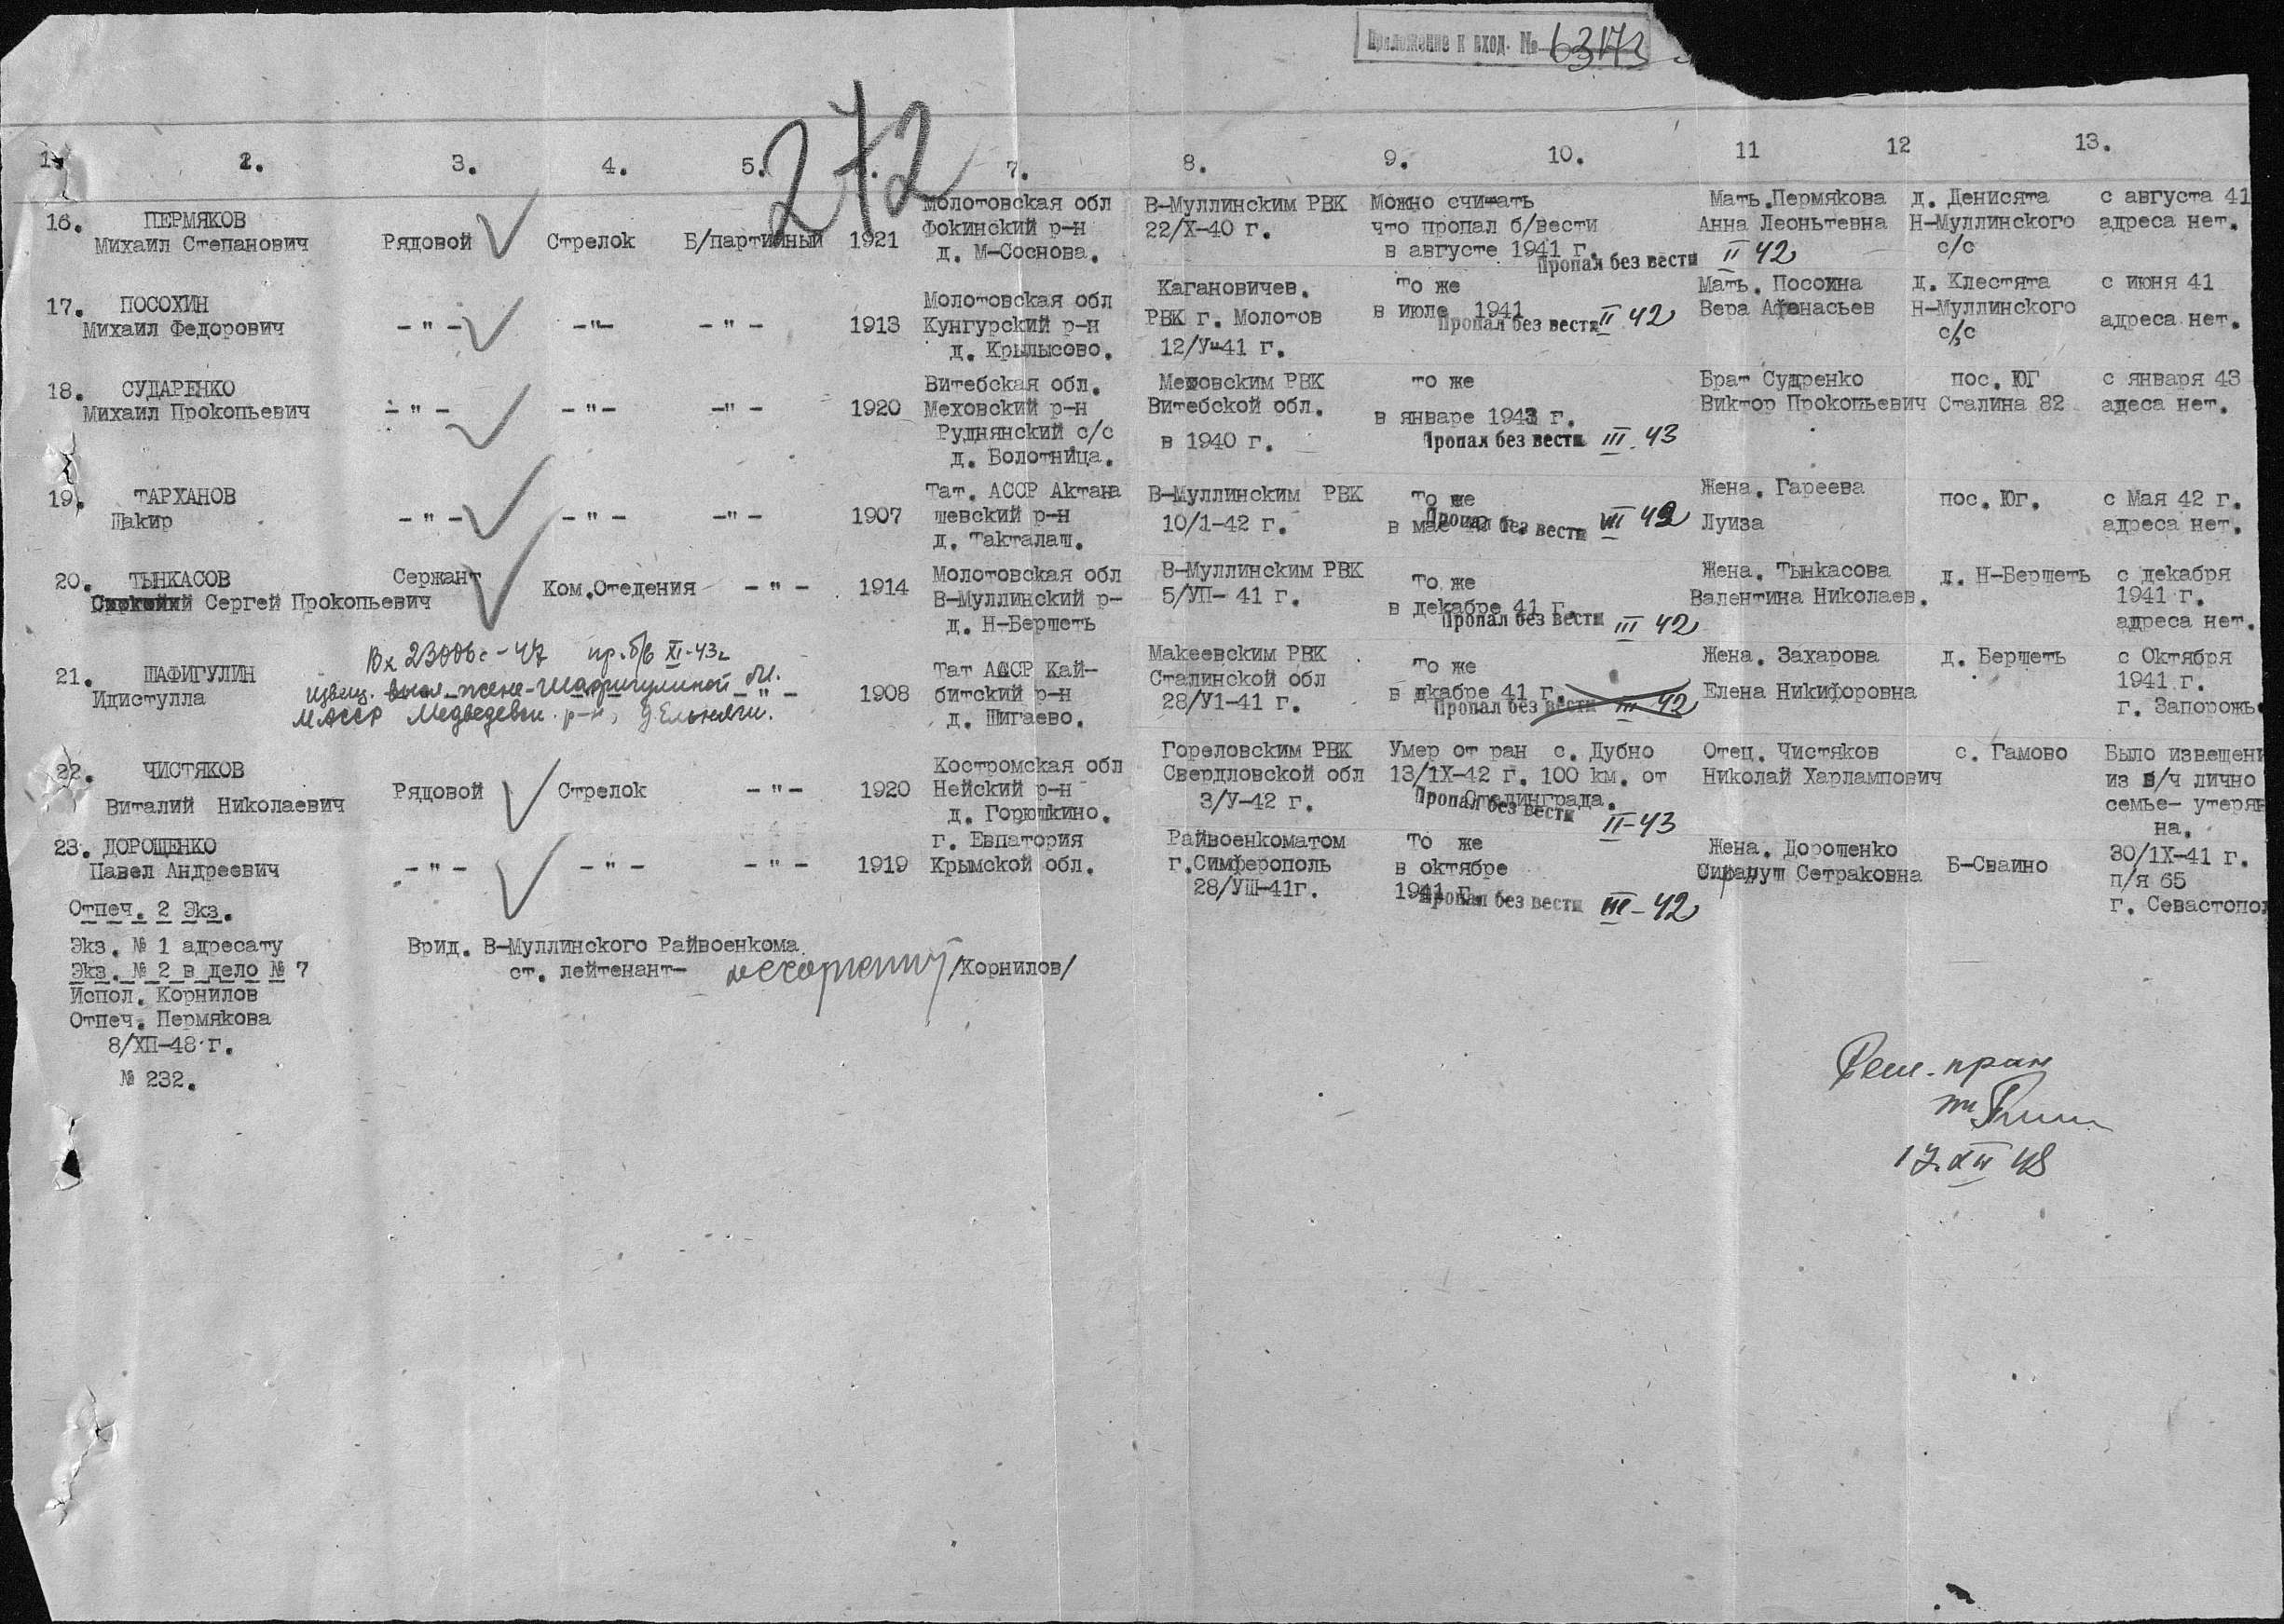 Приложение к вход. № 63173
272
1. 2. 3. 4. 5. 7. 8. 9. 10. 11 12 13.
16. ПЕРМЯКОВ
Михаил Степанович Рядовой Стрелок Б/партийный 1921
Молотовская обл
Фокинский р-н
д. М-Соснова.
В-Муллинским РВК
22/Х-40 г.
Можно считать
что пропал б/вести
в августе 1941 г.
Пропал без вести II 42
Мать.Пермякова
Анна Леоньтевна
д. Денисята
Н-Муллинского
с/с
с августа 41
адреса нет.
17. ПОСОХИН
Михаил Федорович -"- -"- -"- 1913
Молотовская обл
Кунгурский р-н
д. Крылысово.
Кагановичев.
РВК г. Молотов
12/У-41 г.
то же
в июле 1941
Пропал без вести II 42
Мать. Посохина
Вера Афанасьев
д. Клестята
Н-Муллинского
с/с
с июня 41
адреса нет.
18. СУДАРЕНКО
Михаил Прокопьевич -"- -"- -"- 1920
Витебская обл.
Меховский р-н
Руднянский с/с
д. Болотница.
Меховским РВК
Витебской обл.
в 1940 г.
то же
в январе 1943 г.
Пропал без вести III.43
Брат Судренко
Виктор Прокопьевич
пос. ЮГ
Сталина 82
с января 43
адеса нет.
19. ТАРХАНОВ
Шакир -"- -"- -"- 1907
Тат. АССР Актана
шевский р-н
д. Такталаш.
В-Муллинским РВК
10/1-42 г.
То же
в мае 42 г.
Пропал без вести VIII 42
Жена. Гареева
Луиза
пос. Юг.
с Мая 42 г.
адреса нет.
20. ТЫНКАСОВ
Сергей Прокопьевич
Сержант Ком.Отедения -"- 1914
Молотовская обл
В-Муллинский р-
д. Н-Бершеть
В-Муллинским РВК
5/УП- 41 г.
То же
в декабре 41 г.
Пропал без вести III 42
Жена. Тынкасова
Валентина Николаев.
д. Н-Бершеть
с декабря
1941 г.
адреса нет.
21. ШАФИГУЛИН
Идистулла
Вх 23006с-47 пр.б/в XI-43г
извещ. высл. жене-Шафигулиной
МАССР Медведевск. р-н, д Ельняги.
-"- 1908
Тат АССР Кай-
битский р-н
д. Шигаево.
Макеевским РВК
Сталинской обл
28/У1-41 г.
То же
в дкабре 41 г.
Пропал без вести III 42
Жена. Захарова
Елена Никифоровна
д. Бершеть
с Октября
1941 г.
г. Запорожье
22. ЧИСТЯКОВ
Виталий Николаевич Рядовой Стрелок -"- 1920
Костромская обл
Нейский р-н
д. Горюшкино.
Гореловским РВК
Свердловской обл
3/У-42 г.
Умер от ран с. Дубно
13/1Х-42 г. 100 км. от
Сталинграда.
Пропал без вести II-43
Отец. Чистяков
Николай Харлампович
с. Гамово
Было извещени
из в/ч лично
семье- утерян
на.
23. ДОРОЩЕНКО
Павел Андреевич -"- -"- -"- 1919
г. Евпатория
Крымской обл.
Райвоенкоматом
г.Симферополь
28/УШ-41г.
То же
в октябре
1941 г.
Пропал без вести III-42
Жена. Дорошенко
Сирануш Сетраковна
Б-Сваино
30/1Х-41 г.
п/я 65
г. Севастопол
Отпеч. 2 Экз.
Экз. № 1 адресату
Экз. № 2 в дело № 7
Испол. Корнилов
Отпеч. Пермякова
8/ХП-48 г.
№ 232.
Врид. В-Муллинского Райвоенкома
ст. лейтенант- /Корнилов/
17.XII 48